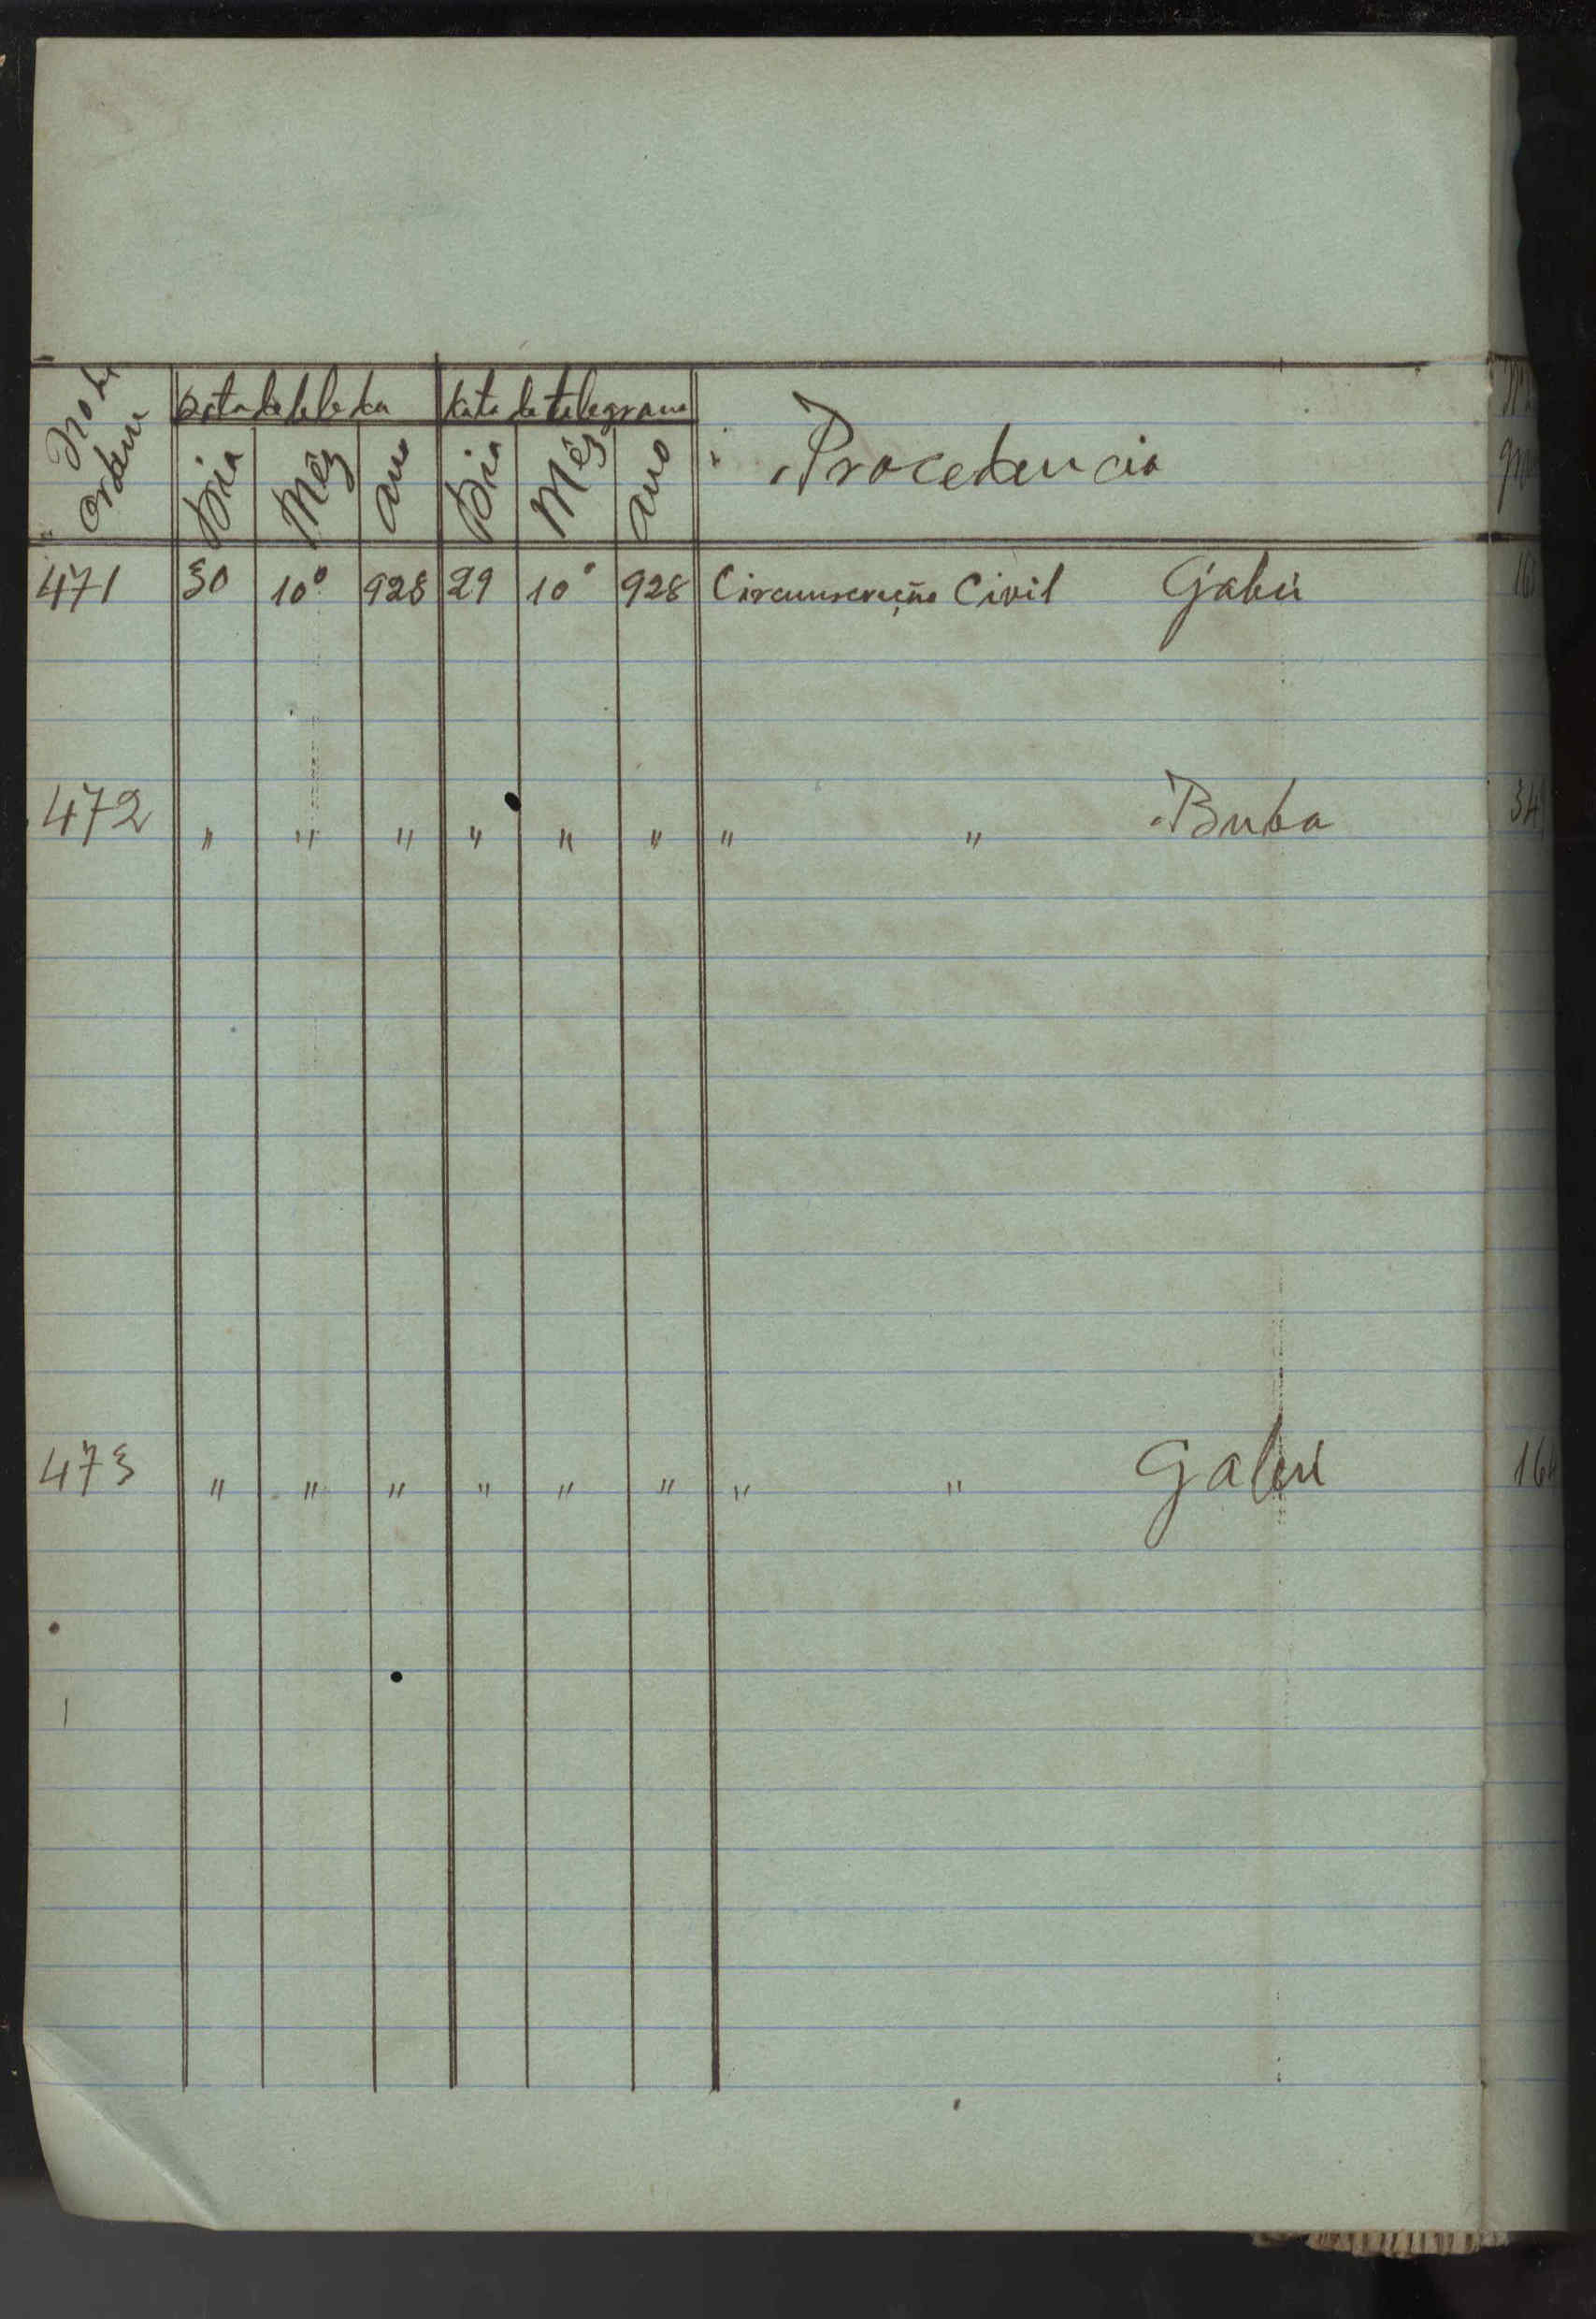 No de ordem
Data da | Data do telegrama
Dia | Mêz | Ano | Dia | Mêz | Ano | Procedencia
471 | 30 | 10º | 928 | 29 | 10º | 928 | Circunscrição Civil Gabú
472 | " | " | " | " | " | " | " " Buba | 34
473 | " | " | " | " | " | " | " " Gabú | 16